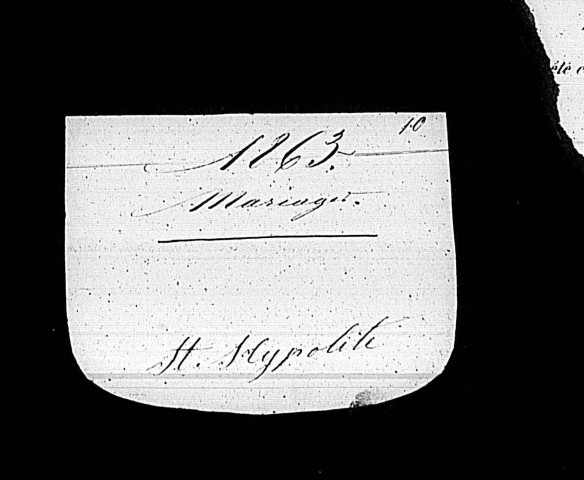 10
1863.
Mariages.
St. Hypolite
été